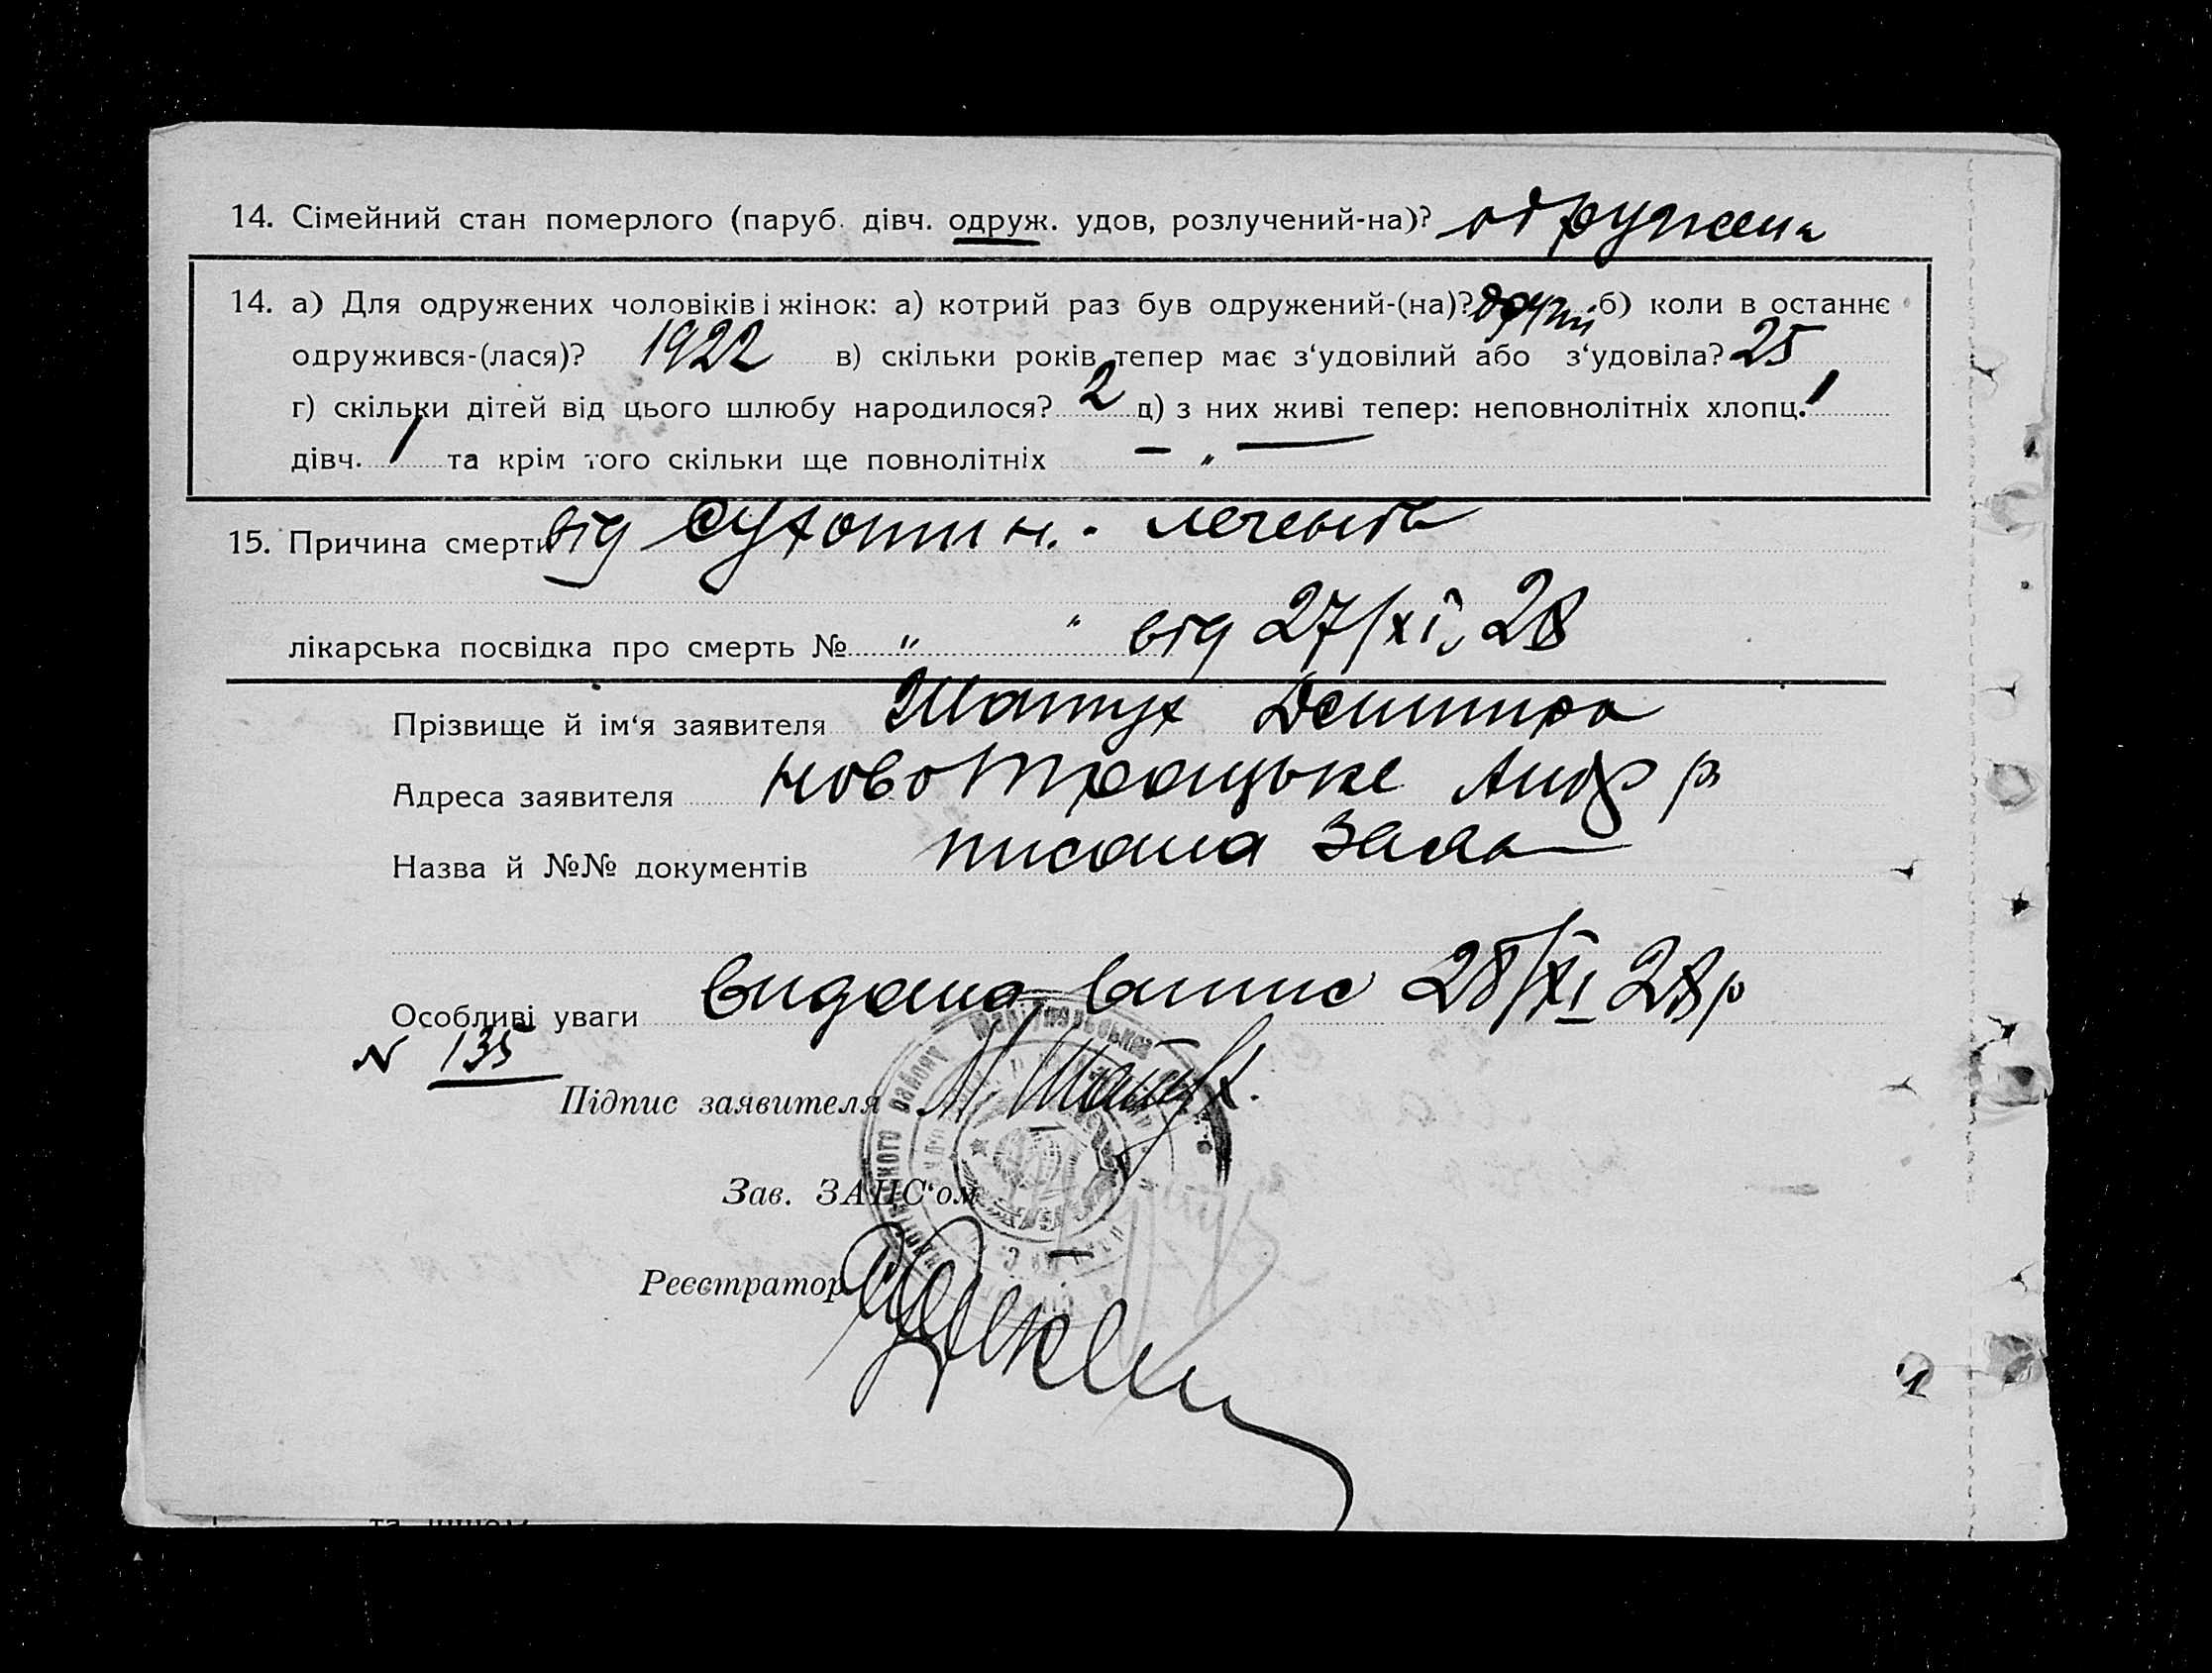 14. Сімейний стан померлого (паруб. дівч. одруж. удов, розлучений-на)? одружена
14. а) Для одружених чоловіків і жінок: а) котрий раз був одружений-(на)? другий б) коли в останнє
одружився-(лася)? 1922 в) скільки років тепер має з‘удовілий або з‘удовіла? 25
г) скільки дітей від цього шлюбу народилося? 2 д) з них живі тепер: неповнолітніх хлопц. 1
дівч. 1 та крім того скільки ще повнолітніх — „ —
15. Причина смерти від сухотин. легенів
лікарська посвідка про смерть № „ “ від 27/XI, 28
Прізвище й ім‘я заявителя Шатух Дмитро
Адреса заявителя Новотроицьке Анд р
Назва й №№ документів писана заява
Особливі уваги видана випис 28/XI 28 р
N 135
Підпис заявителя Шатух.
Зав. ЗАПС‘ом
Реєстратор